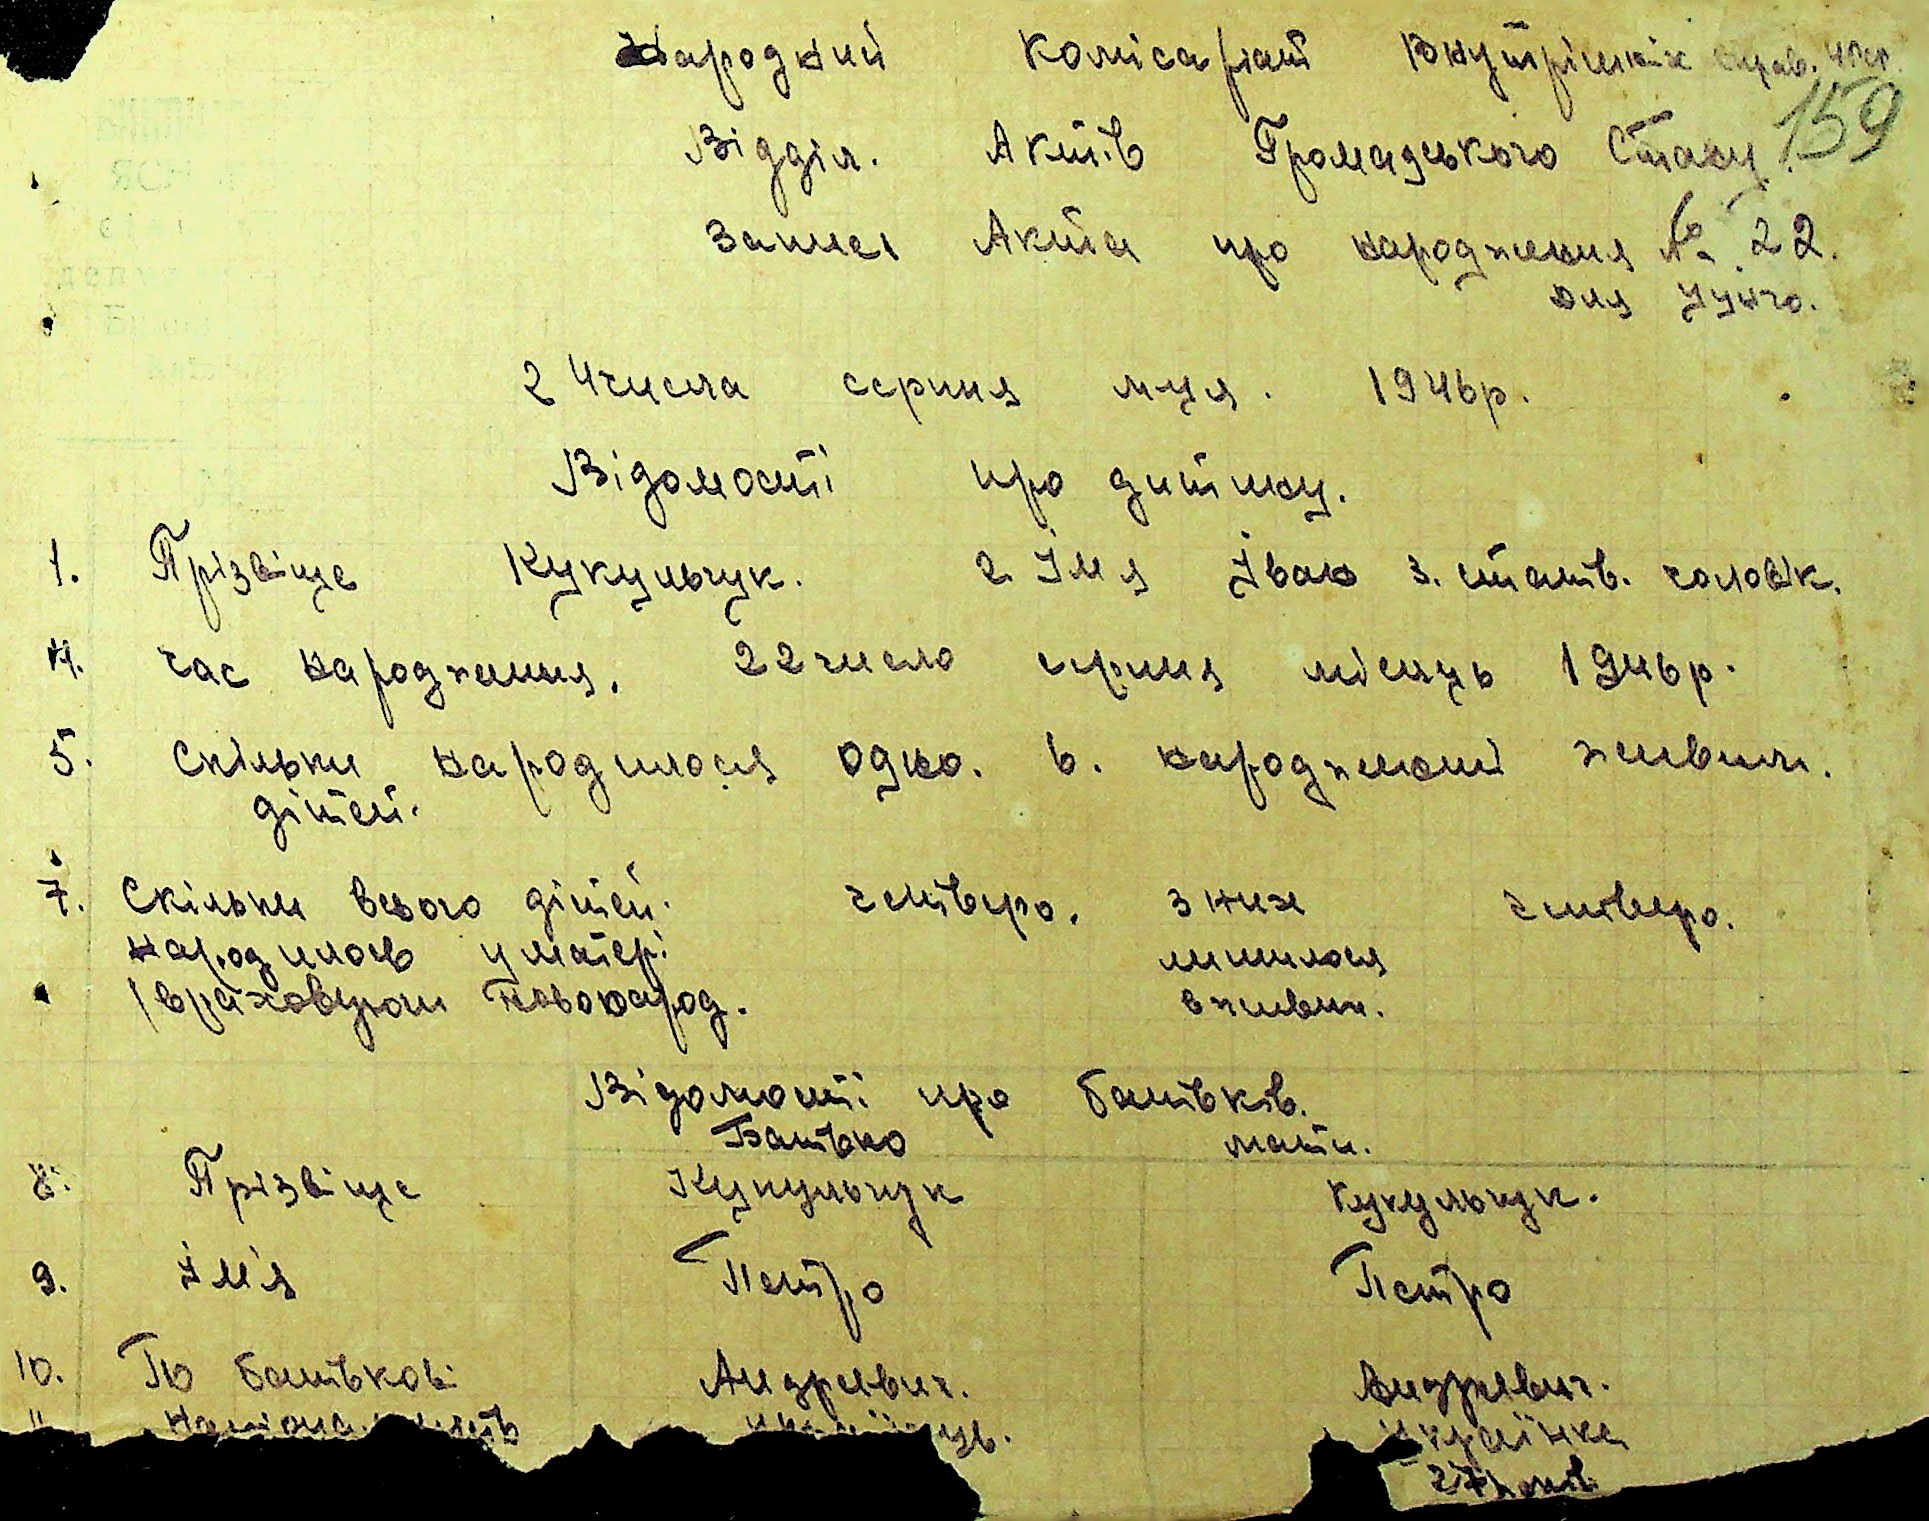 Народний Комісаріат Внутрішніх справ. УРСР.
159
Відділ. Актів Громадського Стану.
Запис Акта про народження № 22.
для
24 числа серпня м-ця. 1946р.
Відомості про дитину.
1. Прізвіще Кукульчук. 2. Імя Іван 3. стать. чоловік.
4. час народження. 22 число серпня місяць 1946р.
5. Скільки народилося одно. 6. народженні живими.
дітей.
7. Скільки всього дітей. четверо. з них четверо.
народилось у матері лишилося
/враховуючи новонарод. в живих.
Відомості про батьків.
Батько мати.
8. Прізвіще Кукульчук Кукульчук.
9. Імя Петро Петро
10. По батькові Андрєвич. Андрєвич.
11 Національність українець. Українка
27 років.